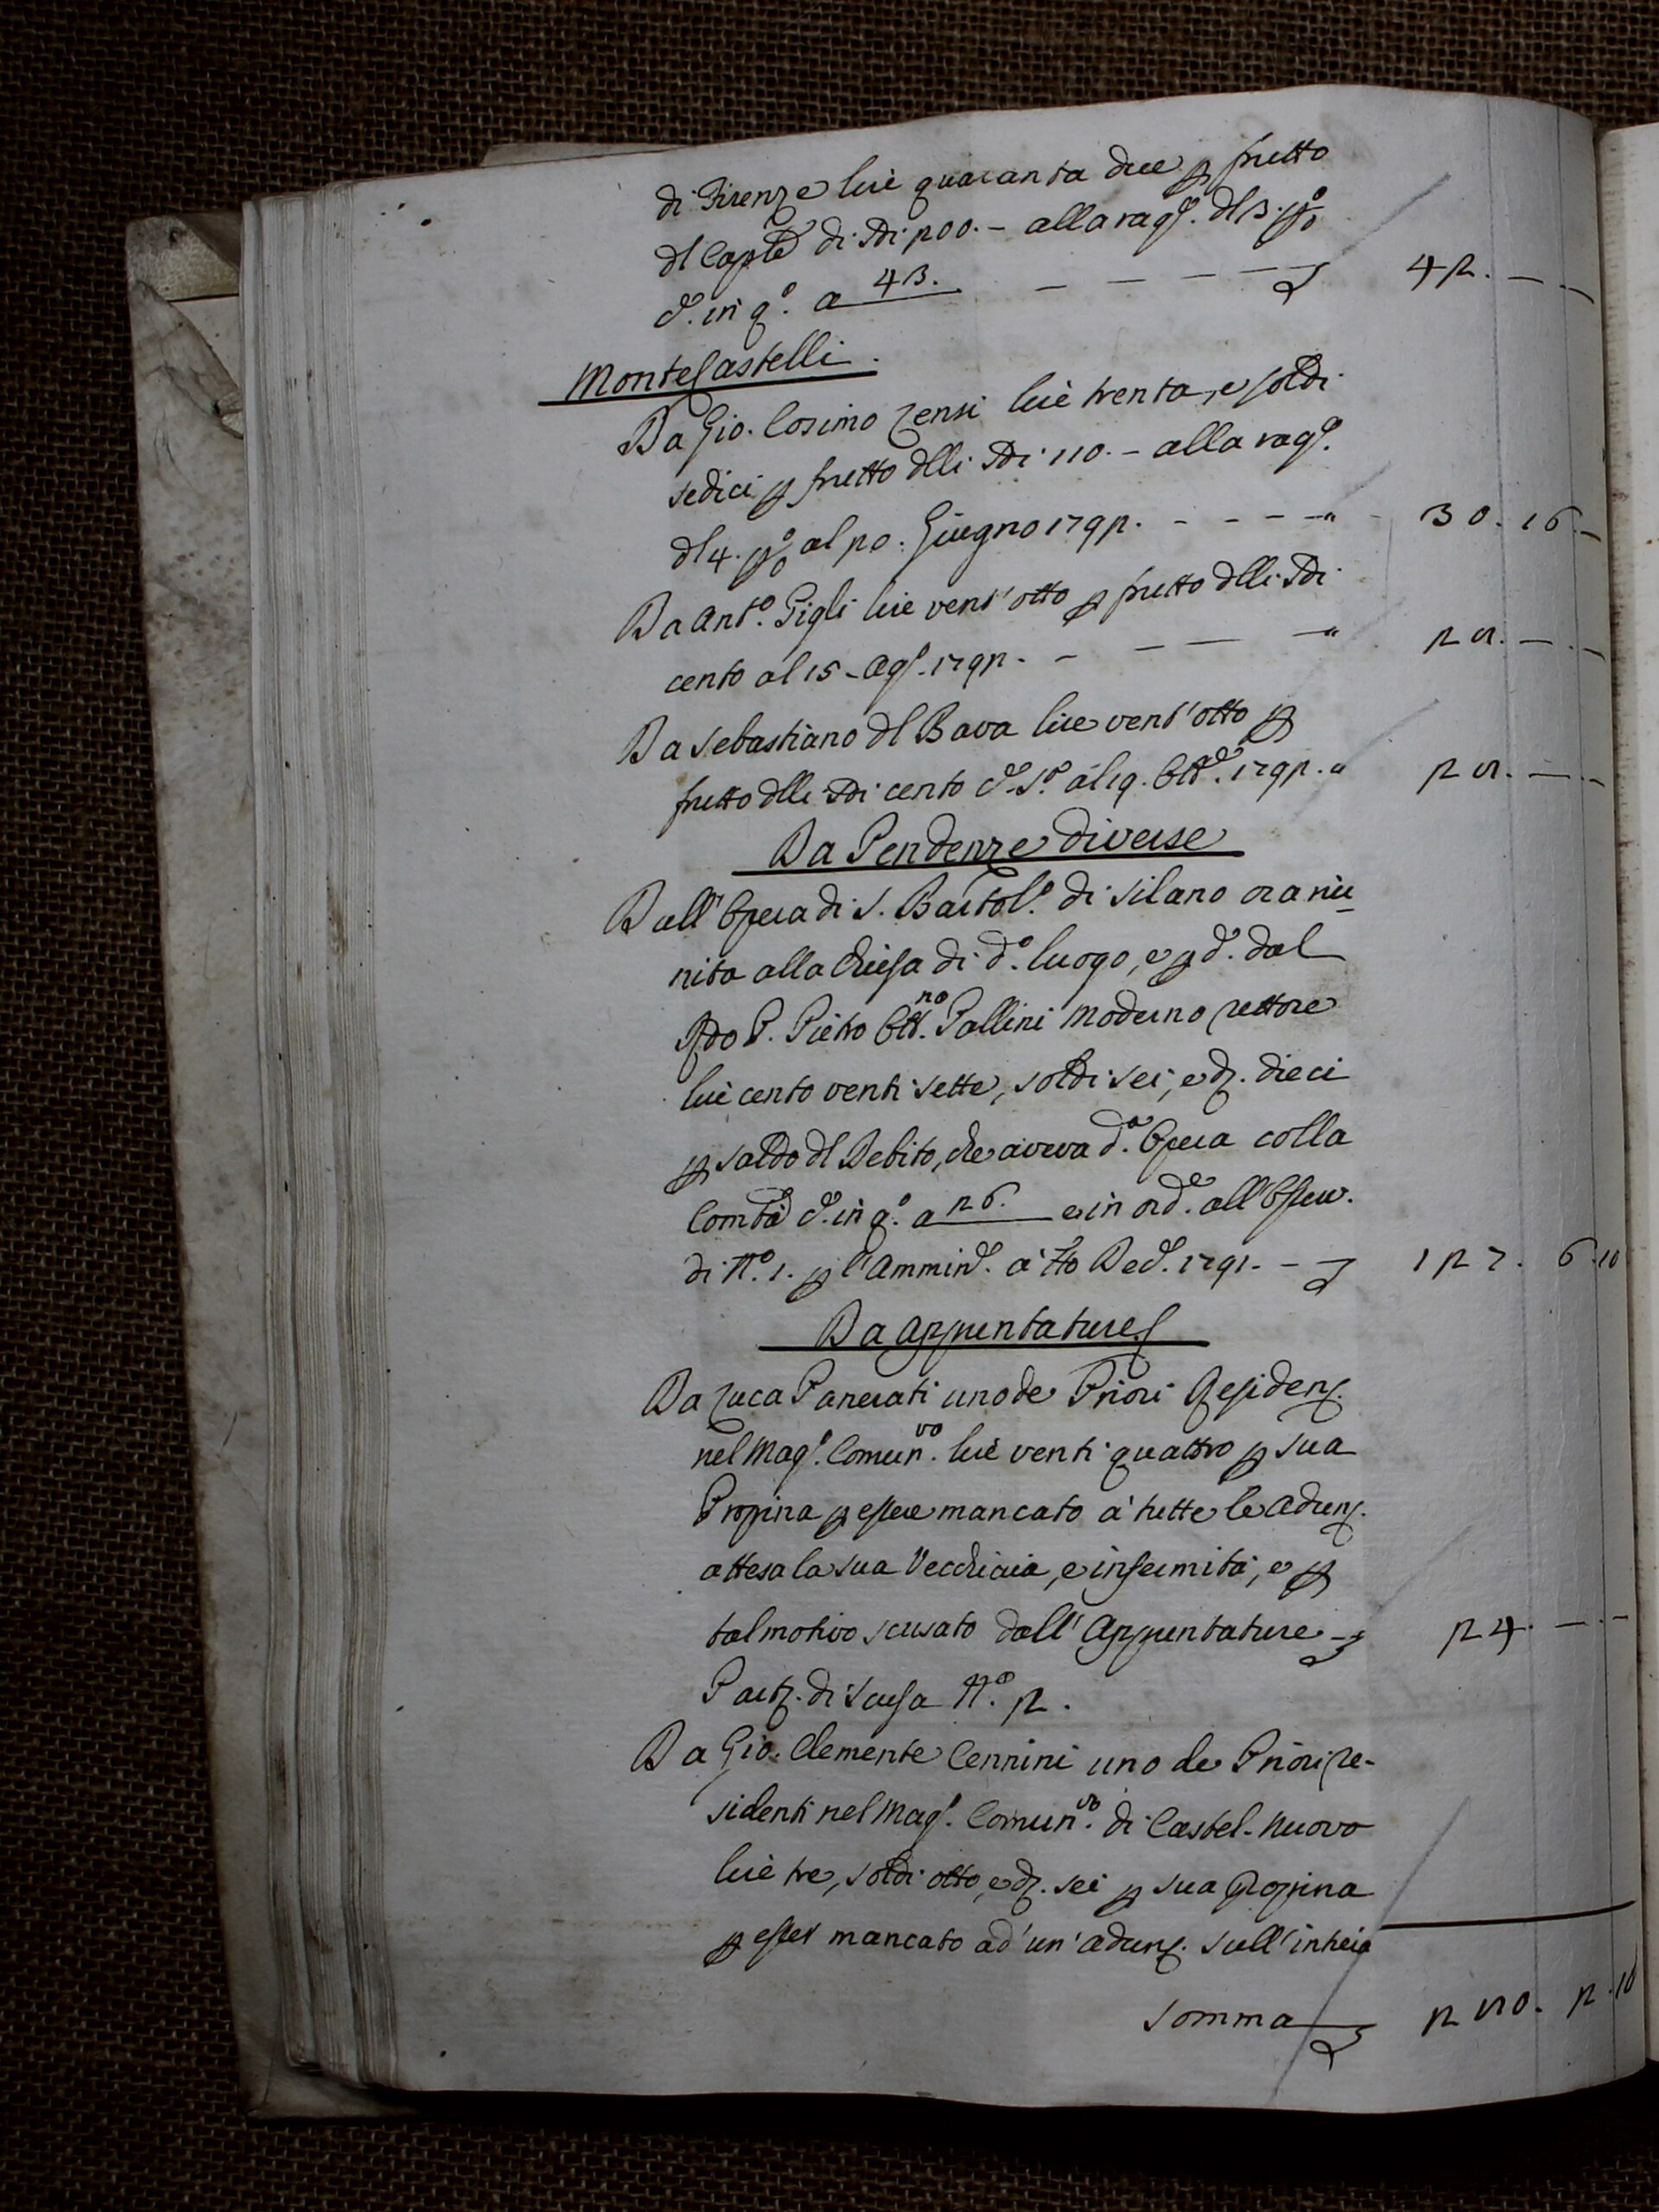 di Firenze lire quaranta due p frutto
dl Caple di Sdi 200.- alla rage. dl 3. p%
Co. in qo. a 43. - - - - 42. - -
MonteCastelli.
Da Gio. Cosimo Zensi lire trenta, e soldi
sedici p frutto dlli Sdi 110.- alla rage.
dl 4. p% al 20. Giugno 1792. - - - - 30. 16. -
Da Anto. Gigli lire vent'otto p frutto dlli Sdi
cento al 15 - Ago. 1792. - - - - 28. - -
Da Sebastiano dl Bava lire vent'otto p
frutto dlli Sdi cento al 19. Ottbre. 1792. 28. - -
Da Pendenze diverse
Dall'Opera di S. Bartolo. di Silano ora riu-
nita alla Chiesa di do. luogo, e p do. dal
Rdo P. Pietro Ottno. Pallini moderno rettore
lire cento venti sette, soldi sei, e dj. dieci
p saldo dl Debito, che aveva da. Opera colla
Comtà Co. in qo. a 26. e in orde. all'Osserv.
di No. 1. p l'Ammine. a tto Dece. 1791. - 127. 6. 10
Da Appuntature
Da Luca Panerati uno de Priori Residenj.
nel Mago. Comunvo. lire venti quattro p sua
Propina p essere mancato a' tutte le adunj.
attesa la sua Vecchiaia, e infermità, e p
tal motivo scusato dall'Appuntature - 24. - -
Partj. di Scusa No. 2.
Da Gio. Clemente Cennini uno de Priori re-
sidenti nel Mago. Comunvo. di Castel-nuovo
lire tre, soldi otto, e dj. sei p sua Propina
p esser mancato ad'un'adunj. sull'intera
Somma 280. 2. 10